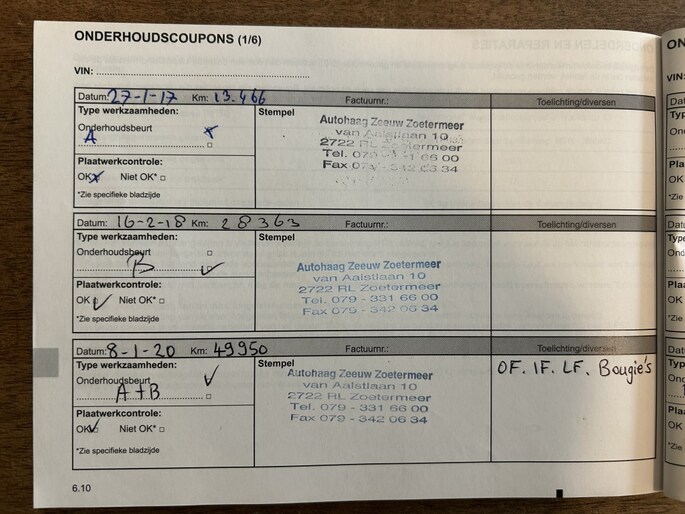 ONDERHOUDSCOUPONS (1/6)
VIN:
Datum: 27-1-17 Km: 13.466 Factuurnr.: Toelichting/diversen
Type werkzaamheden: Stempel
Onderhoudsbeurt x
A
Autohaag Zeeuw Zoetermeer
van Aalstlaan 10
2722 RL Zoetermeer
Tel. 079 - 331 66 00
Fax 079 - 342 06 34
Plaatwerkcontrole:
OK x Niet OK*
*Zie specifieke bladzijde
Datum: 16-2-18 Km: 28363 Factuurnr.: Toelichting/diversen
Type werkzaamheden: Stempel
Onderhoudsbeurt
B ✓
Autohaag Zeeuw Zoetermeer
van Aalstlaan 10
2722 RL Zoetermeer
Tel. 079 - 331 66 00
Fax 079 - 342 06 34
Plaatwerkcontrole:
OK ✓ Niet OK*
*Zie specifieke bladzijde
Datum: 8-1-20 Km: 49950 Factuurnr.: Toelichting/diversen
Type werkzaamheden: Stempel
Onderhoudsbeurt ✓
A+B
Autohaag Zeeuw Zoetermeer
van Aalstlaan 10
2722 RL Zoetermeer
Tel. 079 - 331 66 00
Fax 079 - 342 06 34
OF. IF. LF. Bougie's
Plaatwerkcontrole:
OK ✓ Niet OK*
*Zie specifieke bladzijde
6.10